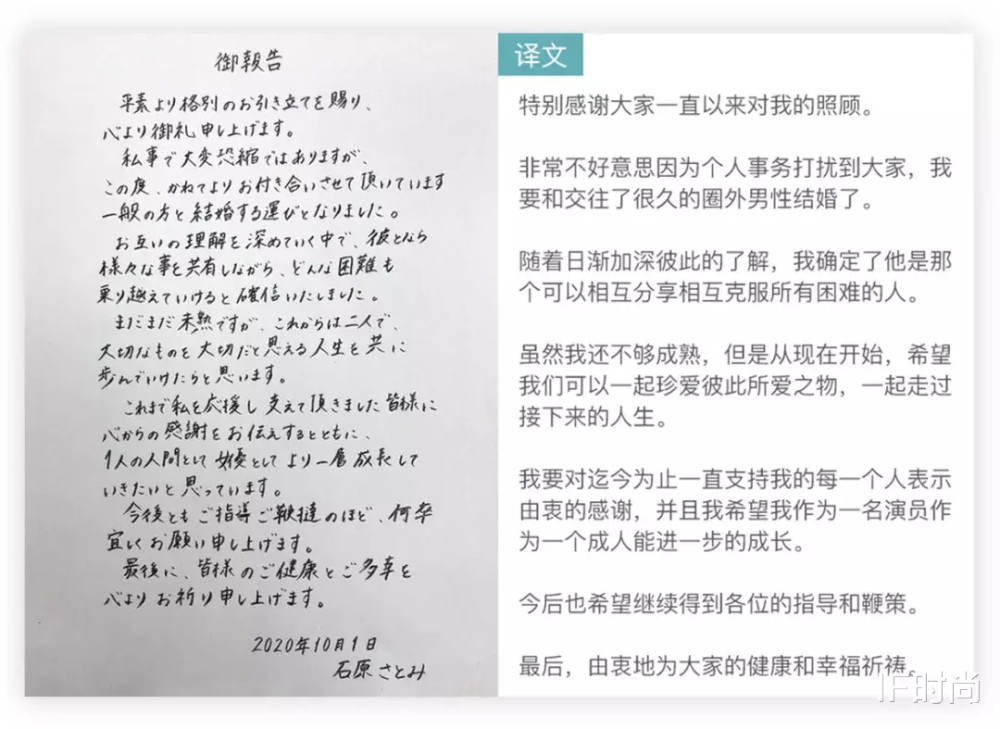 御報告
平素より格別のお引き立てを賜り、
心より御礼申し上げます。
私事で大変恐縮ではありますが、
この度、かねてよりお付き合いさせて頂いています
一般の方と結婚する運びとなりました。
お互いの理解を深めていく中で、彼となら
様々な事を共有しながら、どんな困難も
乗り越えていけると確信いたしました。
まだまだ未熟ですが、これからは二人で、
大切なものを大切だと思える人生を共に
歩んでいけたらと思います。
これまで私を応援し支えて頂きました皆様に
心からの感謝をお伝えするとともに、
1人の人間として女優としてより一層成長して
いきたいと思っています。
今後ともご指導ご鞭撻のほど、何卒
宜しくお願い申し上げます。
最後に、皆様のご健康とご多幸を
心よりお祈り申し上げます。
2020年10月1日
石原さとみ
译文
特别感谢大家一直以来对我的照顾。
非常不好意思因为个人事务打扰到大家，我
要和交往了很久的圈外男性结婚了。
随着日渐加深彼此的了解，我确定了他是那
个可以相互分享相互克服所有困难的人。
虽然我还不够成熟，但是从现在开始，希望
我们可以一起珍爱彼此所爱之物，一起走过
接下来的人生。
我要对迄今为止一直支持我的每一个人表示
由衷的感谢，并且我希望我作为一名演员作
为一个成人能进一步的成长。
今后也希望继续得到各位的指导和鞭策。
最后，由衷地为大家的健康和幸福祈祷。
IF时尚